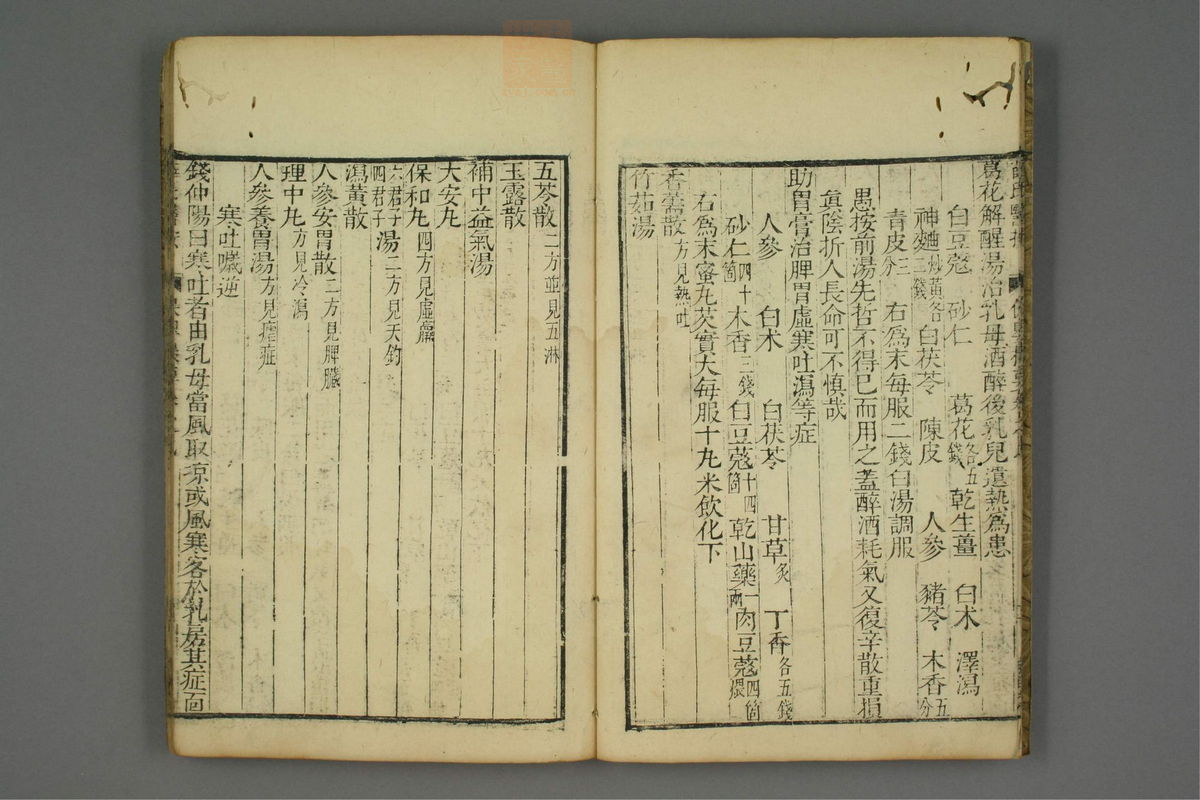 葛花解酲湯治乳母酒醉後乳兒遺熱爲患
白豆蔻 砂仁 葛花各五錢 乾生薑 白朮 澤瀉
神麯炒黃各二錢 白茯苓 陳皮 人參 豬苓 木香五分
青皮三分 右爲末每服二錢白湯調服
愚按前湯先哲不得已而用之蓋醉酒耗氣又復辛散重損
眞陰折人長命可不慎哉
助胃膏治脾胃虛寒吐瀉等症
人參 白朮 白茯苓 甘草炙 丁香各五錢
砂仁四十箇 木香三錢 白豆蔻十四箇 乾山藥一兩 肉豆蔻四箇煨
右爲末蜜丸芡實大每服十丸米飲化下
香薷散方見熱吐
竹茹湯
五苓散二方並見五淋
玉露散
補中益氣湯
大安丸
保和丸四方見虛羸
六君子四君子湯二方見天釣
瀉黃散
人參安胃散二方見脾臟
理中丸方見冷瀉
人參養胃湯方見瘧症
寒吐噦逆
錢仲陽曰寒吐者由乳母當風取涼或風寒客於乳房其症面